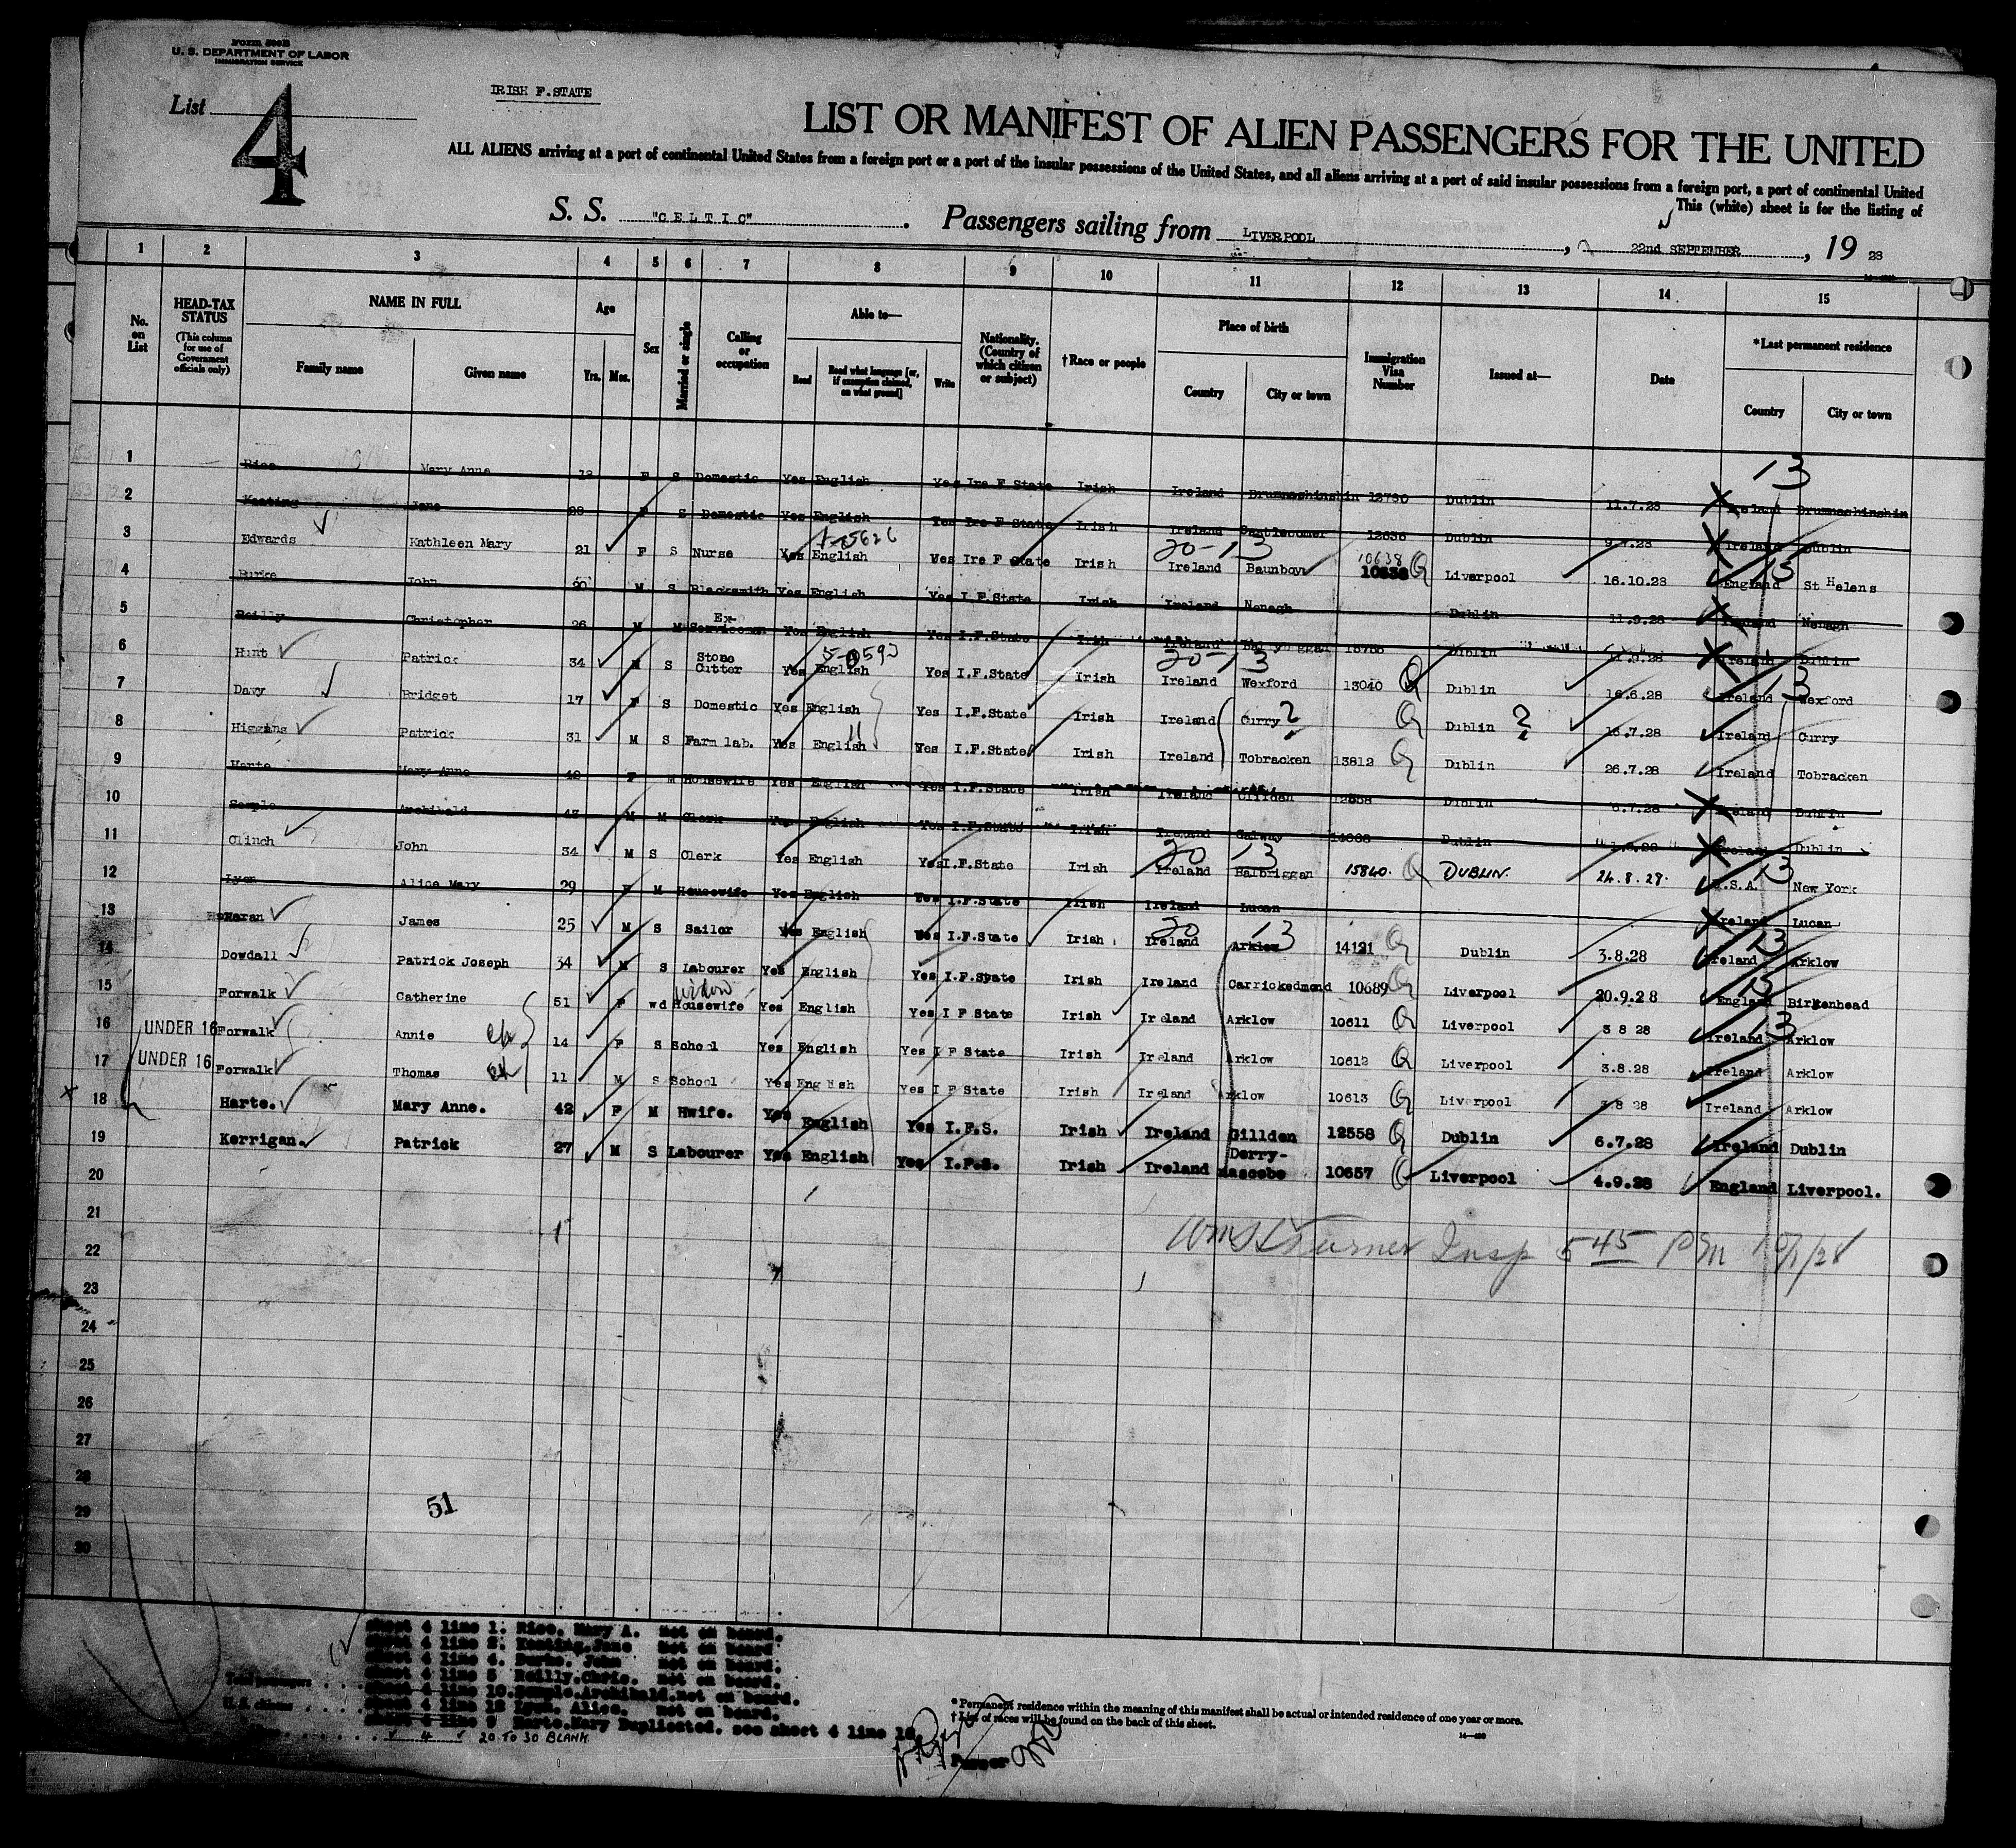 Form 500B
U. S. DEPARTMENT OF LABOR
IMMIGRATION SERVICE
List 4
IRISH F.STATE
LIST OR MANIFEST OF ALIEN PASSENGERS FOR THE UNITED
ALL ALIENS arriving at a port of continental United States from a foreign port or a port of the insular possessions of the United States, and all aliens arriving at a port of said insular possessions from a foreign port, a port of continental United
This (white) sheet is for the listing of
S. S. "CELTIC". Passengers sailing from LIVERPOOL, 22nd SEPTEMBER, 19 28
1 2 3 4 5 6 7 8 9 10 11 12 13 14 15
No. on List
HEAD-TAX STATUS
(This column for use of Government officials only)
NAME IN FULL
Family name Given name
Age
Yrs. Mos.
Sex
Married or single
Calling or occupation
Able to—
Read Read what language [or, if exemption claimed, on what ground] Write
Nationality. (Country of which citizen or subject)
†Race or people
Place of birth
Country City or town
Immigration Visa Number
Issued at—
Date
*Last permanent residence
Country City or town
13
1 Rice Mary Anne 18 F S Domestic Yes English Yes Ire F State Irish Ireland Drumnashinshin 12730 Dublin 11.7.28 Ireland Drumnashinshin
2 Keating Jane 28 F S Domestic Yes English Yes Ire F State Irish Ireland Castlecomer 12636 Dublin 9.7.28 Ireland Dublin
20-13 10638 13
3 Edwards Kathleen Mary 21 F S Nurse Yes English Yes Ire F State Irish Ireland Baunboy 10638 Liverpool 16.10.28 England St Helens
4 Burke John 20 M S Blacksmith Yes English Yes I.F.State Irish Ireland Nenagh Dublin 11.9.28 Ireland Nenagh
5 Reilly Christopher 26 M M Ex-Serviceman Yes English Yes I.F.State Irish Ireland Dublin 11.9.28 Ireland Dublin
20-13 13
6 Hunt Patrick 34 M S Stone Cutter Yes English Yes I.F.State Irish Ireland Wexford 13040 Dublin 16.6.28 Ireland Wexford
7 Davy Bridget 17 F S Domestic Yes English Yes I.F.State Irish Ireland Curry ? Dublin ? 16.7.28 Ireland Curry
8 Higgins Patrick 31 M S Farm lab. Yes English Yes I.F.State Irish Ireland Tobracken 13812 Dublin 26.7.28 Ireland Tobracken
9 Harte Mary Anne 42 F M Housewife Yes English Yes I.F.State Irish Ireland Gillden 12558 Dublin 6.7.28 Ireland Dublin
10 Semple Archibald 43 M M Clerk Yes English Yes I.F.State Irish Ireland Galway Dublin Ireland Dublin
20 13 13
11 Clinch John 34 M S Clerk Yes English Yes I.F.State Irish Ireland Balbriggan 15840 DUBLIN. 24.8.28. U.S.A. New York
12 Lyon Alice Mary 29 F M Housewife Yes English Yes I.F.State Irish Ireland Lucan Ireland Lucan
20 13 13
13 Haran James 25 M S Sailor Yes English Yes I.F.State Irish Ireland Arklow 14121 Dublin 3.8.28 Ireland Arklow
13
14 Dowdall Patrick Joseph 34 M S Labourer Yes English Yes I.F.State Irish Ireland Carrickedmond 10689 Liverpool 20.9.28 England Birkenhead
widow 13
15 Forwalk Catherine 51 F wd Housewife Yes English Yes I F State Irish Ireland Arklow 10611 Liverpool 3 8 28 Ireland Arklow
16 UNDER 16 Forwalk Annie 14 F S School Yes English Yes I F State Irish Ireland Arklow 10612 Liverpool 3.8.28 Ireland Arklow
17 UNDER 16 Forwalk Thomas 11 M S School Yes English Yes I F State Irish Ireland Arklow 10613 Liverpool 3.8 28 Ireland Arklow
18 Harte. Mary Anne. 42 F M Hwife. Yes English Yes I.F.S. Irish Ireland Gillden 12558 Dublin 6.7.28 Ireland Dublin
19 Kerrigan. Patrick 27 M S Labourer Yes English Yes I.F.S. Irish Ireland Derry- 10657 Liverpool 4.9.28 England Liverpool.
20
21
Wm S Turner Insp 5 45 PM 10/1/28
22
23
24
25
26
27
28
29
30
51
Sheet 4 line 1. Rice. Mary A. Not on board.
Sheet 4 line 2. Keating.Jane Not on board.
Sheet 4 line 4. Burke. John Not on board.
Sheet 4 line 5 Reilly.Chris. not on board.
Sheet 4 line 10.Semple.Archibald.not on board.
Sheet 4 line 12 Lyon. Alice. not on board.
Sheet 4 line 9 Harte.Mary Duplicated. see sheet 4 line 18
Total passengers
U. S. citizens
4 20 TO 30 BLANK
* Permanent residence within the meaning of this manifest shall be actual or intended residence of one year or more.
† List of races will be found on the back of this sheet.
Purser